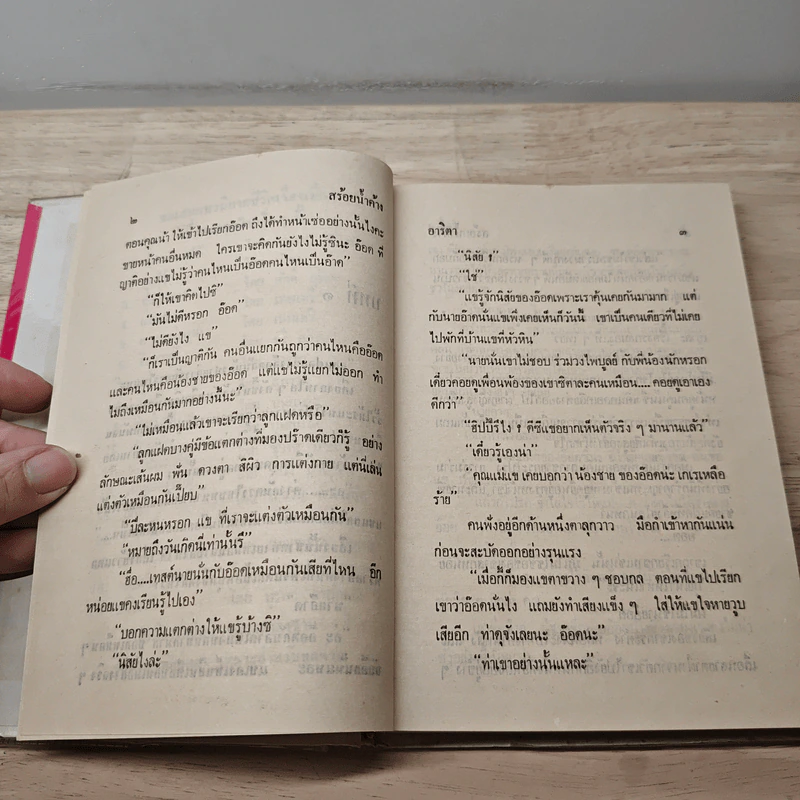 ๒
สร้อยน้ำค้าง
ตอนคุณน้า ให้เข้าไปเรียกอ๊อด ถึงได้ทำหน้าเซ่ออย่างนั้นไงคะ
ขายหน้าคนอื่นหมด ใครเขาจะคิดกันยังไงไม่รู้ซินะ อ๊อด ที่
ญาติอย่างแขไม่รู้ว่าคนไหนเป็นอ๊อดคนไหนเป็นอ๊าด”
“ก็ให้เขาคิดไปซิ”
“มันไม่ดีหรอก อ๊อด”
“ไม่ดียังไง แข”
“ก็เราเป็นญาติกัน คนอื่นแยกกันถูกว่าคนไหนคืออ๊อด
และคนไหนคือน้องชายของอ๊อด แต่แขไม่รู้แยกไม่ออก ทำ
ไมถึงเหมือนกันมากอย่างนั้นะ”
“ไม่เหมือนแล้วเขาจะเรียกว่าลูกแฝดหรือ”
“ลูกแฝดบางคู่มีข้อแตกต่างที่มองปร๊าดเดียวก็รู้ อย่าง
ลักษณะเส้นผม ฟัน ดวงตา สีผิว การแต่งกาย แต่นี่เล่น
แต่งตัวเหมือนกันเปี๊ยบ”
“ปีละหนหรอก แข ที่เราจะแต่งตัวเหมือนกัน”
“หมายถึงวันเกิดนี่เท่านั้นรึ”
“ฮื่อ....เทสต์นายนั่นกับอ๊อดเหมือนกันเสียที่ไหน อีก
หน่อยแขคงเรียนรู้ไปเอง”
“บอกความแตกต่างให้แขรู้บ้างซิ”
“นิสัยไงล่ะ”
อาริตา
๓
“นิสัย !”
“ใช่”
“แขรู้จักนิสัยของอ๊อดเพราะเราคุ้นเคยกันมามาก แต่
กับนายอ๊าดนั่นแขเพิ่งเคยเห็นก็วันนี้ เขาเป็นคนเดียวที่ไม่เคย
ไปพักที่บ้านแขที่หัวหิน”
“นายนั่นเขาไม่ชอบ ร่วมวงไพบูลย์ กับพี่น้องนักหรอก
เดี๋ยวคอยดูเพื่อนพ้องของเขาซิตาละคนเหมือน.... คอยดูเอาเอง
ดีกว่า”
“ฮิปปี้รึไง ! ดีซีแขอยากเห็นตัวจริง ๆ มานานแล้ว”
“เดี๋ยวรู้เองน่า”
“คุณแม่แข เคยบอกว่า น้องชาย ของอ๊อดน่ะ เกเรเหลือ
ร้าย”
คนฟังอยู่อีกด้านหนึ่งตาลุกวาว มือกำเข้าหากันแน่น
ก่อนจะสะบัดออกอย่างรุนแรง
“เมื่อกี้ก็มองแขตาขวาง ๆ ชอบกล ตอนที่แขไปเรียก
เขาว่าอ๊อดนั่นไง แถมยังทำเสียงแข็ง ๆ ใส่ให้แขใจหายวูบ
เสียอีก ท่าดุจังเลยนะ อ๊อดนะ”
“ท่าเขาอย่างนั้นแหละ”